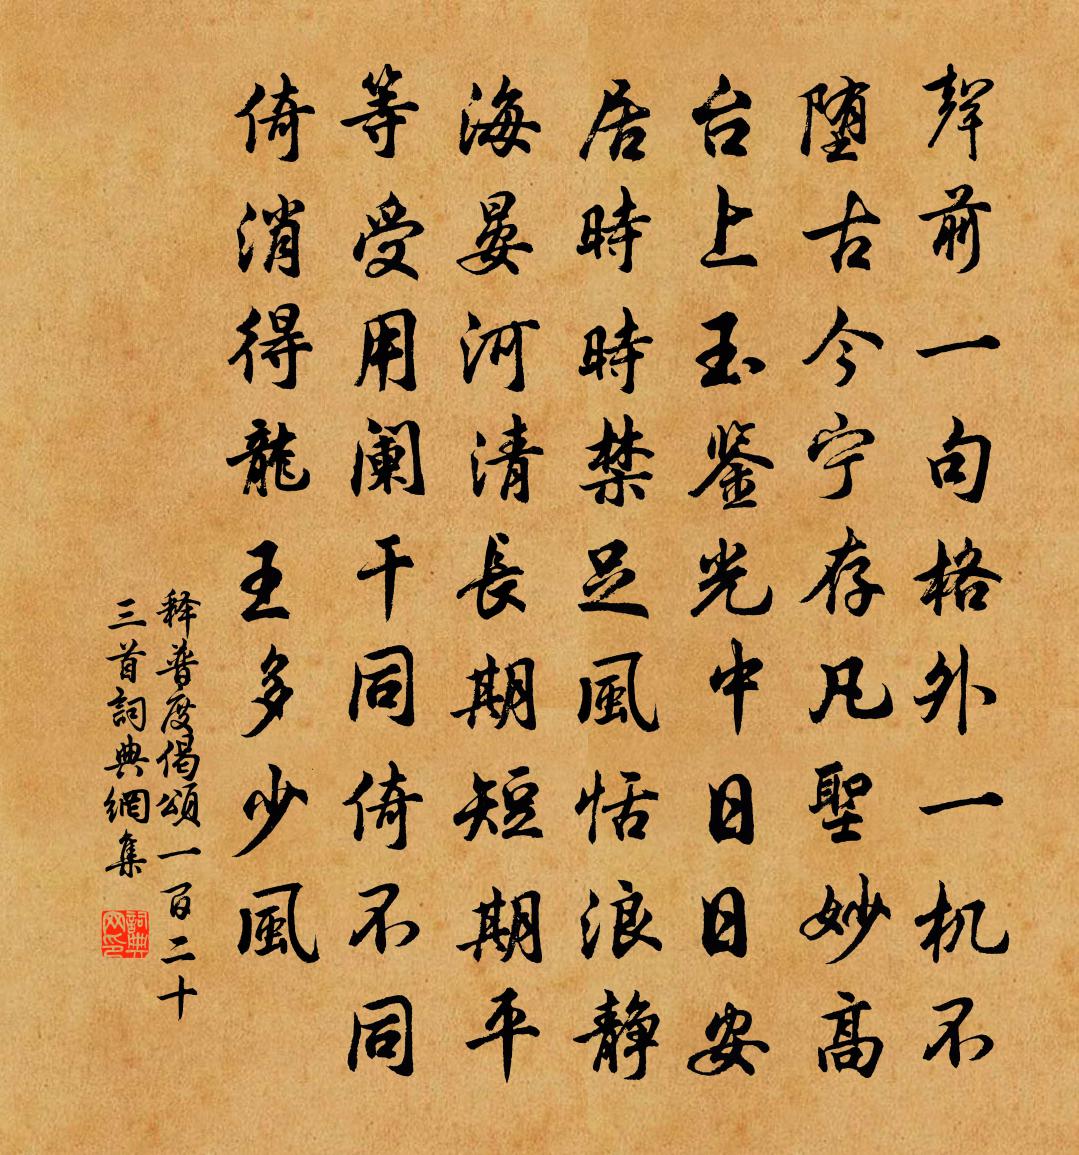 聲前一句格外一机不
堕古今宁存凡聖妙高
台上玉鉴光中日日安
居時時禁足風恬浪静
海晏河清長期短期平
等受用阑干同倚不同
倚消得龍王多少風
释普度偈頌一百二十
三首詞典網集
詞典网印